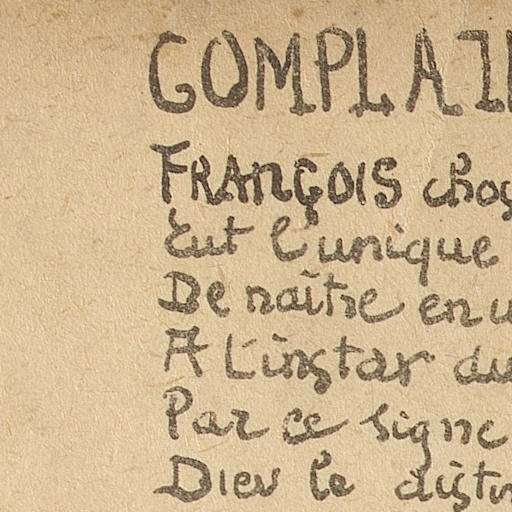 COMPLAI
FRANÇOIS
Eut l'unique
De naître en
A l'instar du
Par ce signe
Dieu le